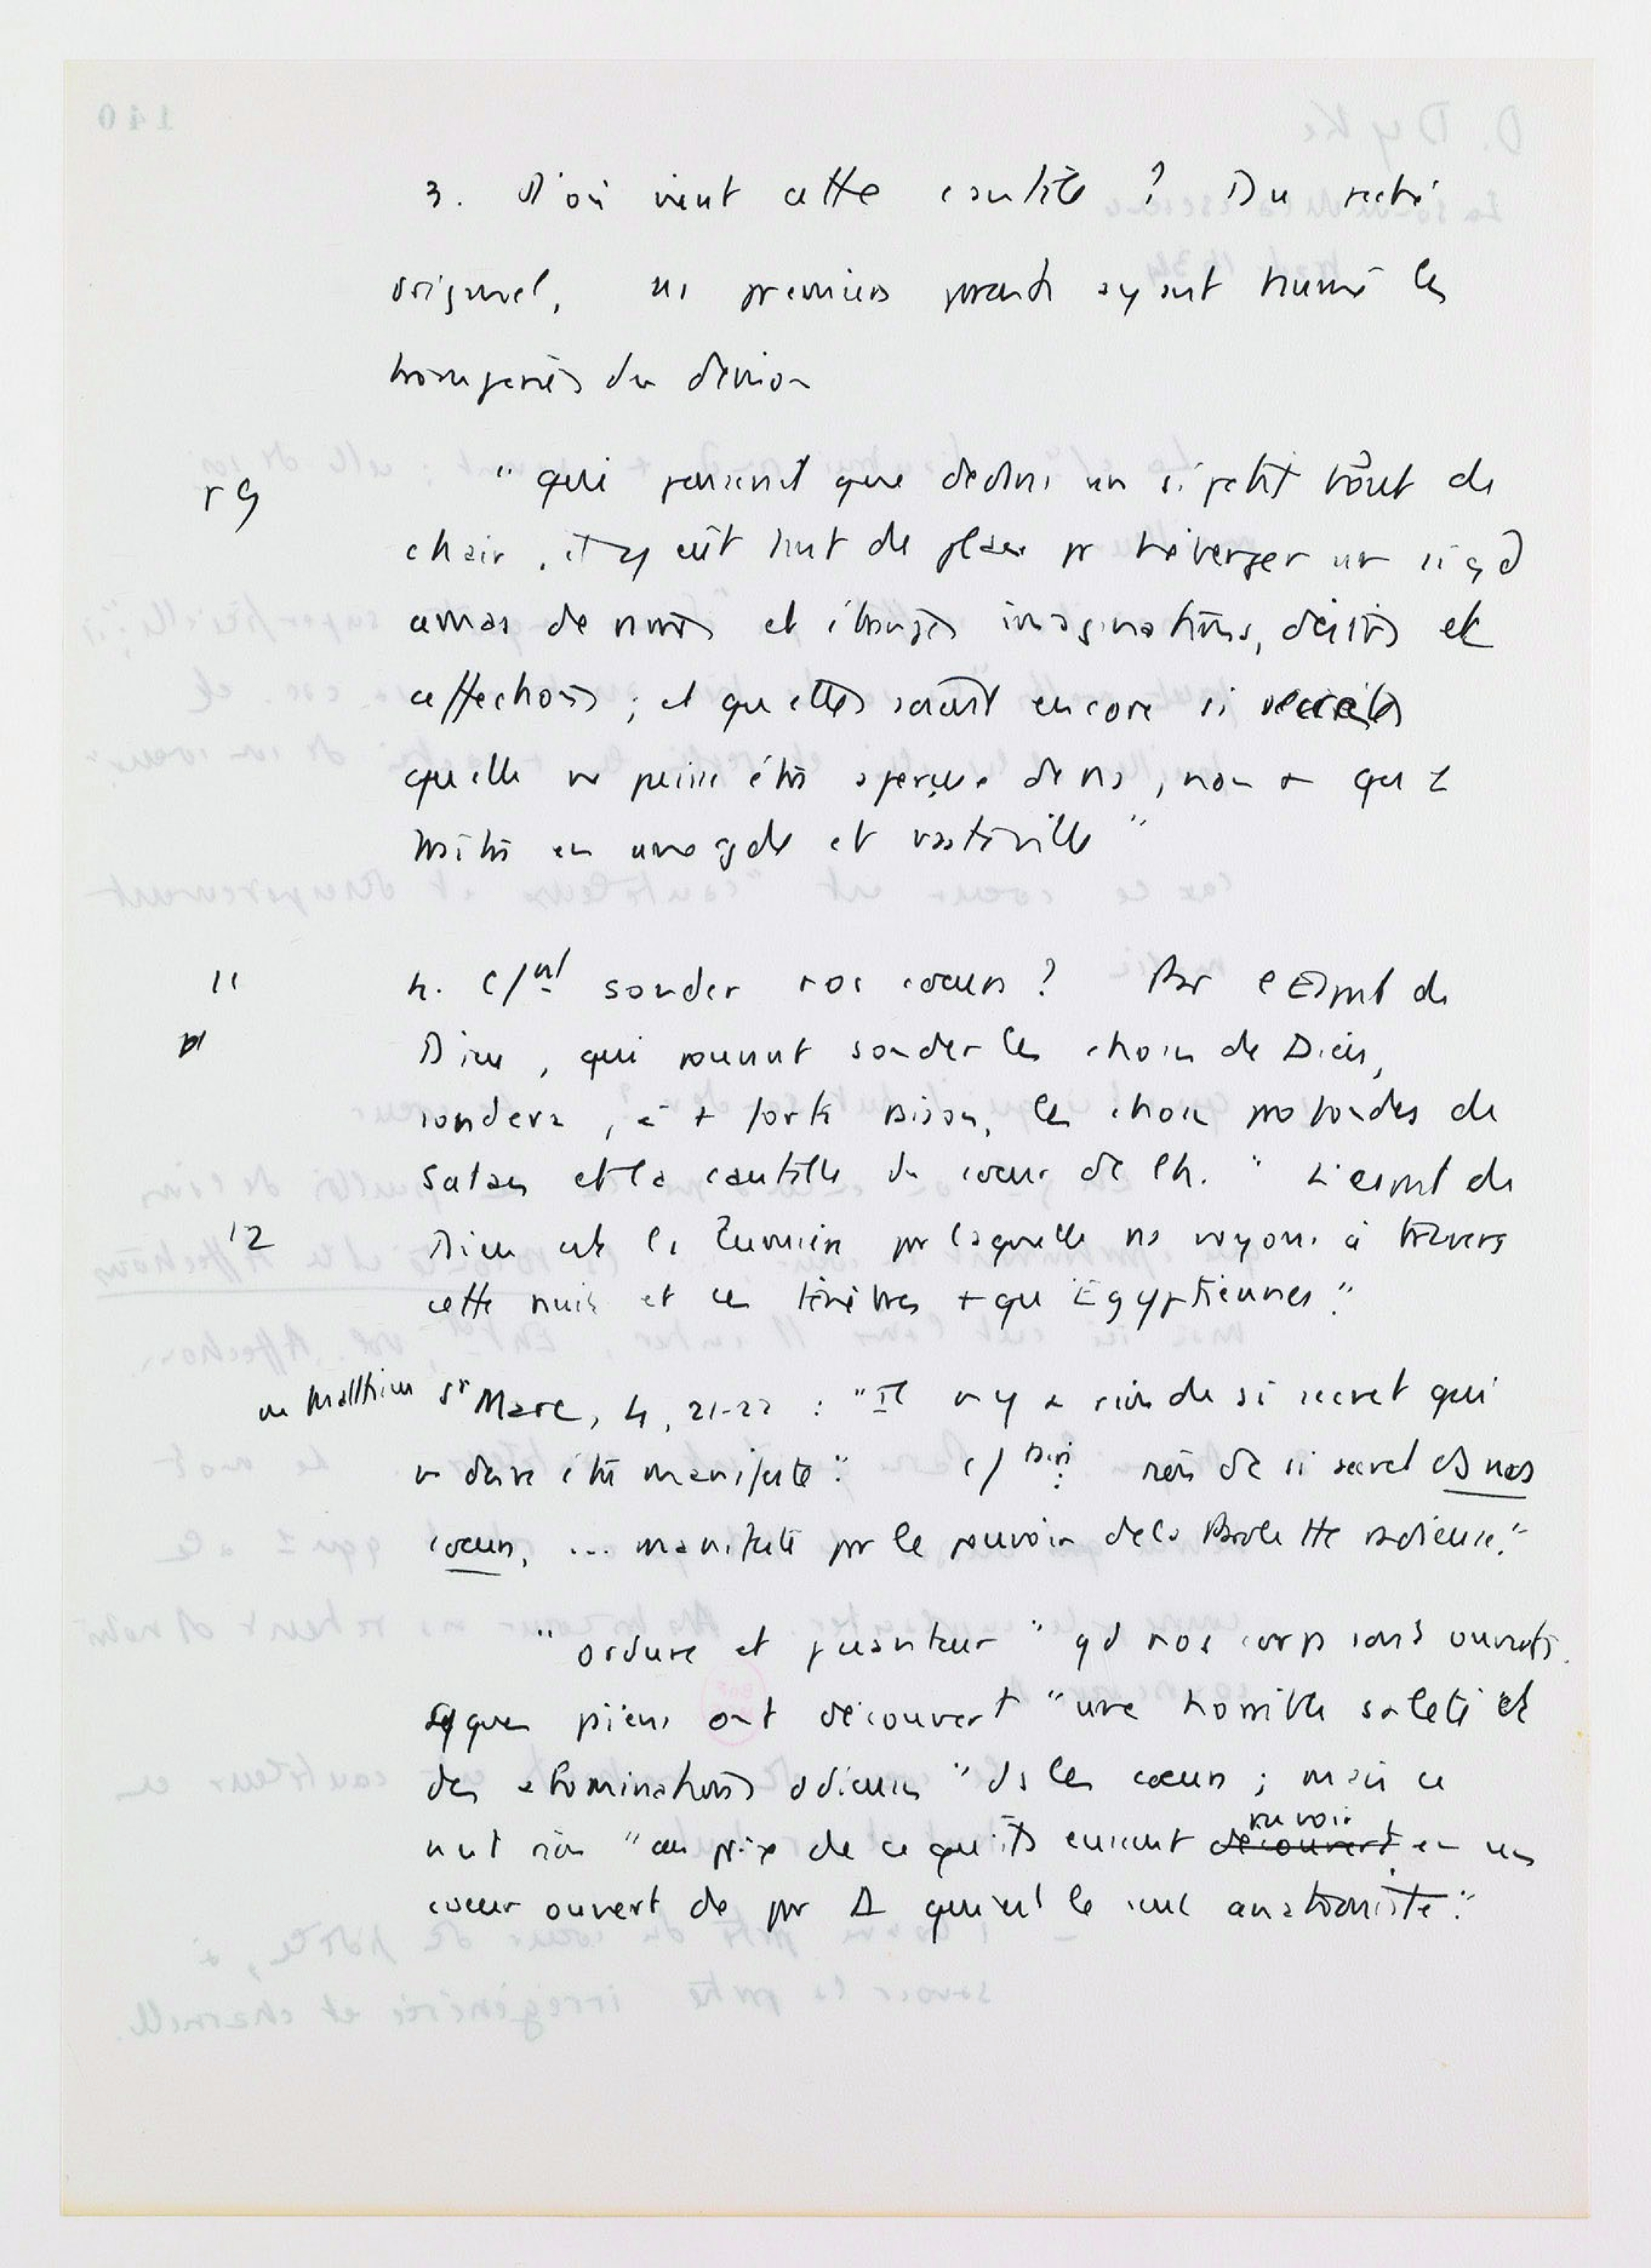 3. D'où vient cette cautèle ? Du péché
originel, ns premiers parents ayant humé les
tromperies du démon
r 9 " qui penserait que dedans un si petit bout de
chair, il y eût tant de place pr héberger un si gd
amas de et étranges imaginations, désirs et
affections ; et qu'elles soient encore si secrètes
qu'elle ne puisse être aperçue de ns, non + qu' 1
traître en une gde et vaste ville "
11 4. c/nt sonder nos cœurs ? Par l'Esprit de
Dieu, qui pouvant sonder les choses de Dieu,
sondera, à + forte raison, les choses profondes de
Satan et la cautelle du cœur de l'h. " L'esprit de
12 Dieu est la lumière par laquelle ns voyons à travers
cette nuit et ces ténèbres + qu'Egyptiennes."
ou Matthieu sr Marc, 4, 21-22 : "Il n'y a rien de si secret qui
ne doive être manifesté." c/ rien de si secret ds nos
cœurs, ... manifesté par le pouvoir de la Parole tte radieuse."
" ordure et puanteur " qd nos corps sont ouverts.
Sqques païens ont découvert "une horrible saleté et
des abominations odieuses " ds les cœurs ; mais ce
n'est rien "au prix de ce qu'ils eussent découvert pu voir en un
cœur ouvert de par D qui est le seul anatomiste."